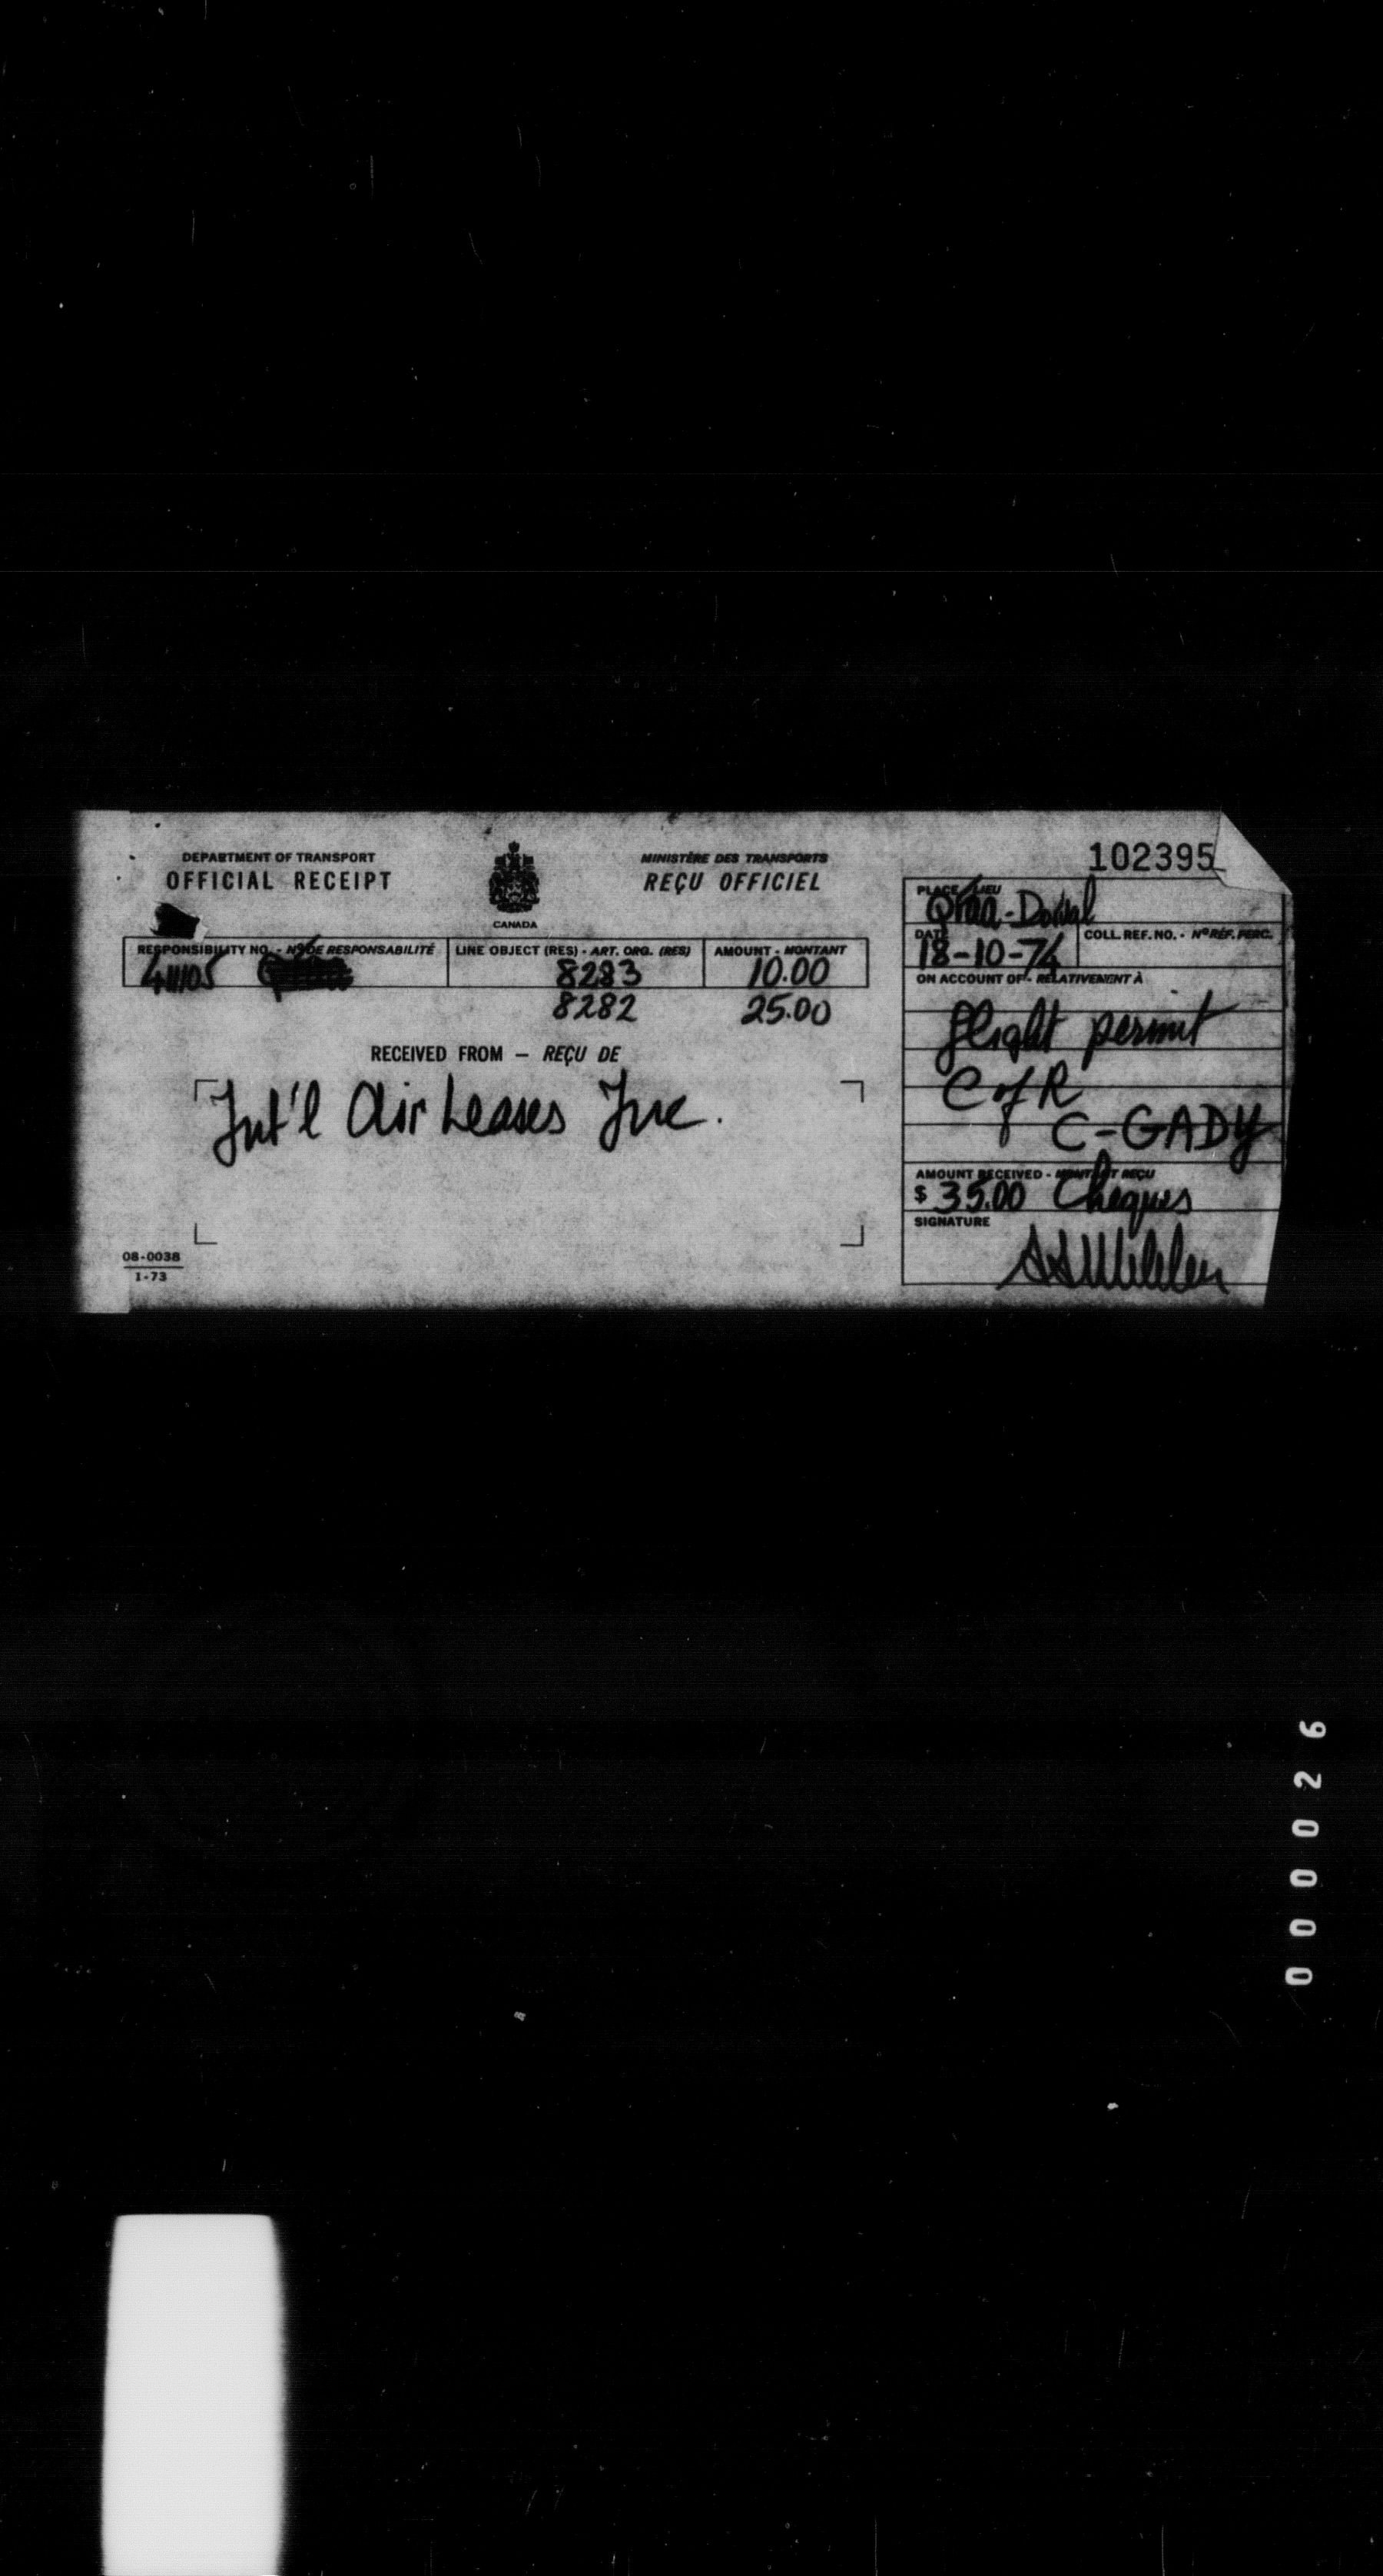 DEPARTMENT OF TRANSPORT
OFFICIAL RECEIPT
CANADA
MINISTÈRE DES TRANSPORTS
REÇU OFFICIEL
102395
PLACE - LIEU
-Dorval
DATE
18-10-74
COLL. REF. NO. - Nº RÉF. PERC.
RESPONSIBILITY NO. - Nº DE RESPONSABILITÉ
411105
LINE OBJECT (RES) - ART. ORG. (RES)
8283
8282
AMOUNT - MONTANT
10.00
25.00
RECEIVED FROM — REÇU DE
Int'l Air Leases Inc.
ON ACCOUNT OF - RELATIVEMENT À
flight permit
C of R
C-GADY
AMOUNT RECEIVED - MONTANT REÇU
$ 35.00 Cheques
SIGNATURE
08-0038
1-73
000026